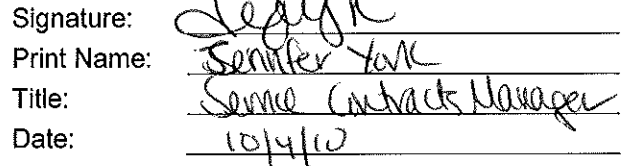 Signature:
Print Name: Jennifer York
Title: Service Contracts Manager
Date: 10/4/10